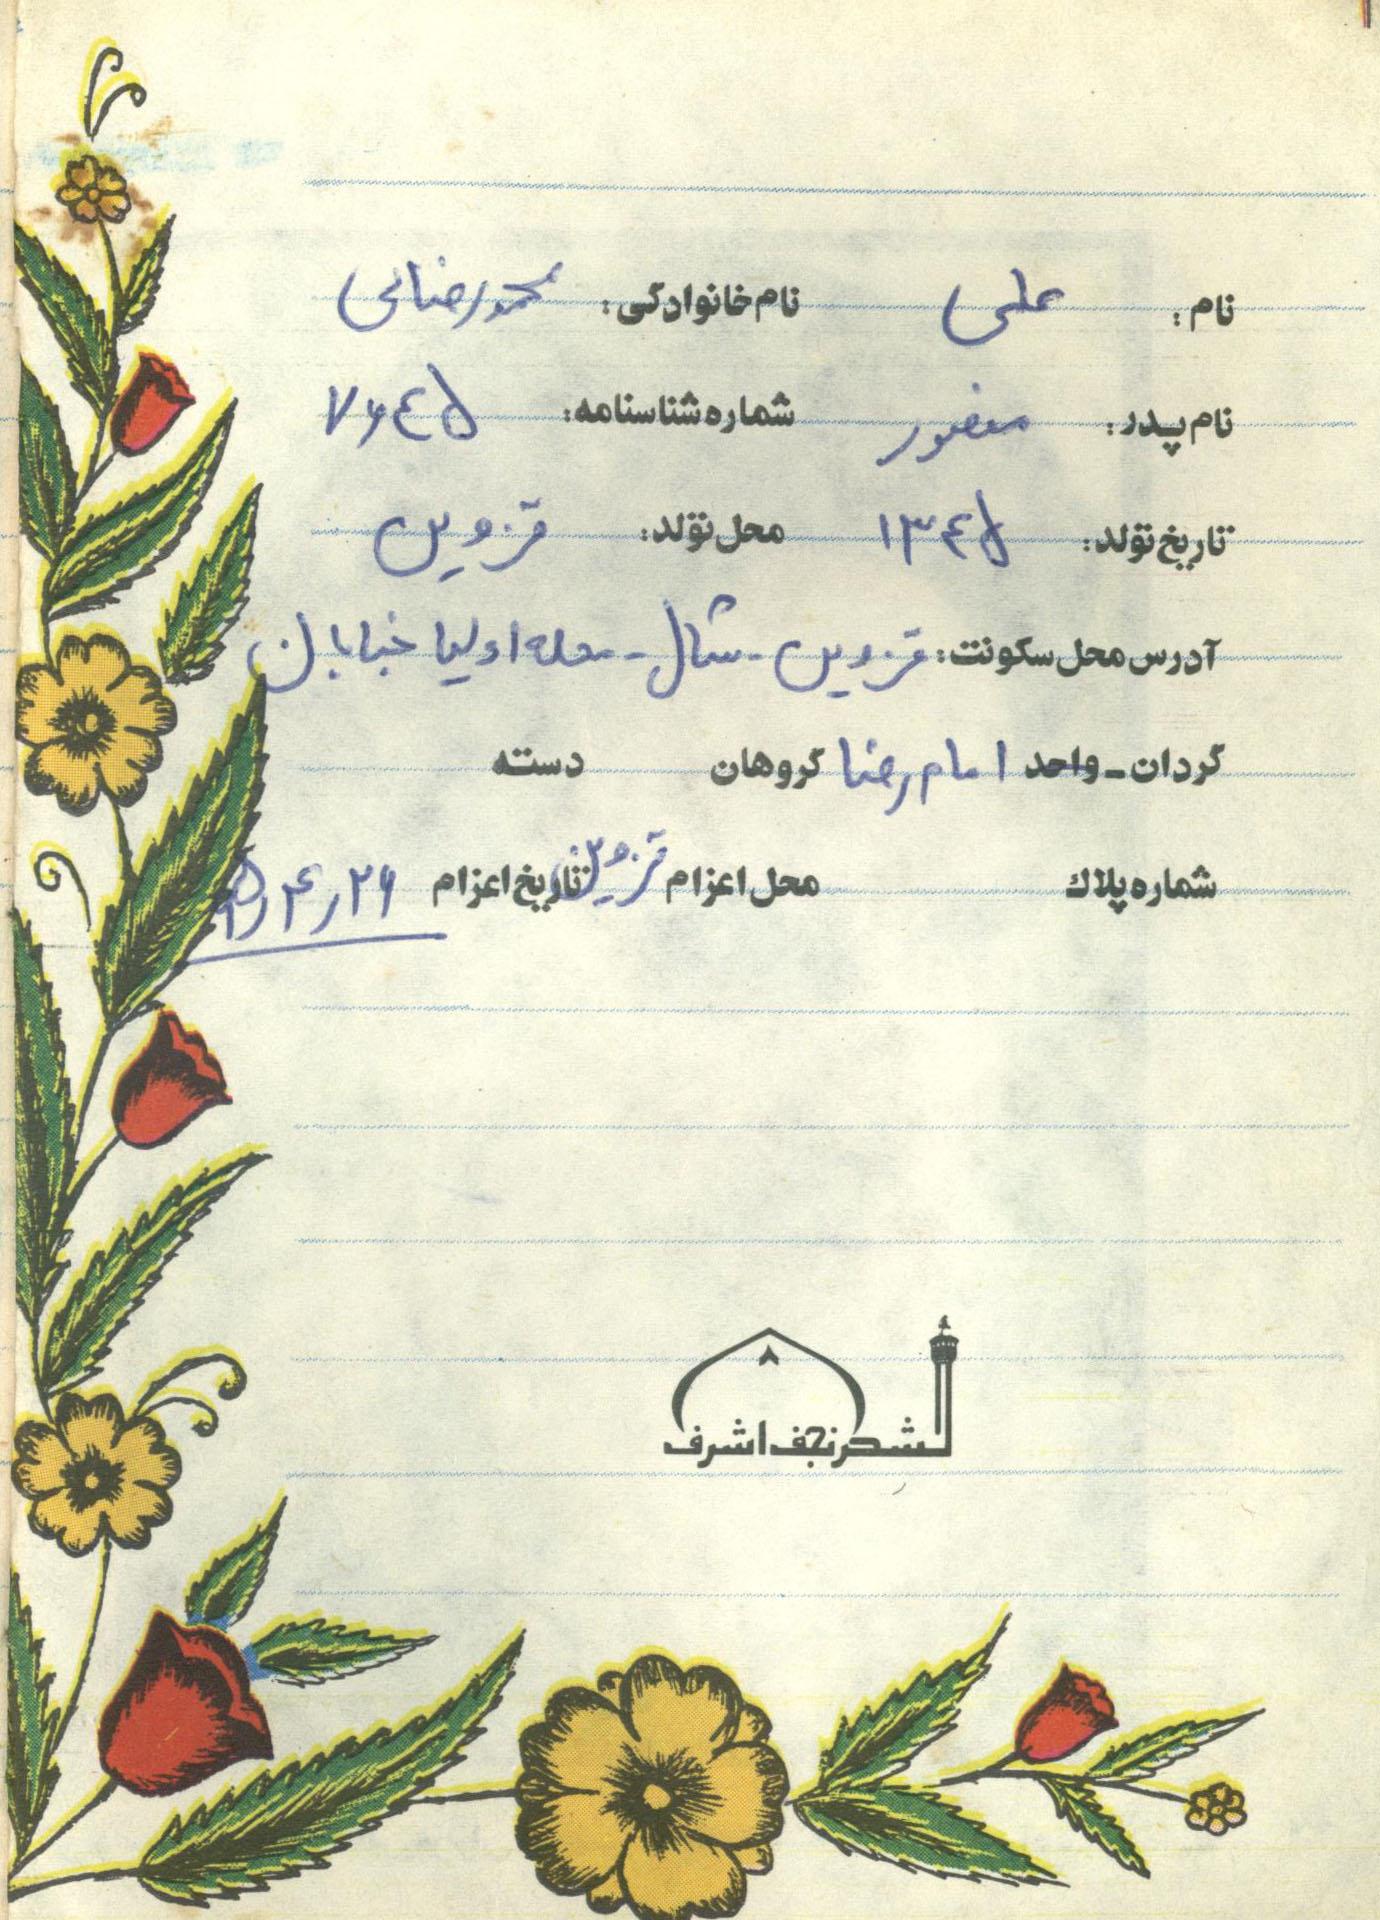 نام: علی نام خانوادگی: محمدرضائی
نام پدر: منصور شماره شناسنامه: ۷۶۴۵
تاریخ تولد: ۱۳۴۵ محل تولد: قزوین
آدرس محل سکونت: قزوین - شال - محله اولیا خیابان
گردان - واحد امام رضا گروهان دسته
شماره پلاک محل اعزام قزوین تاریخ اعزام ۲۶ر۴ر
۸
لشکر نجف اشرف